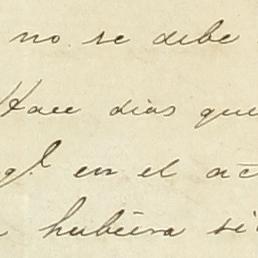 no se debe
Hace dias que
en el ac
hubiera si